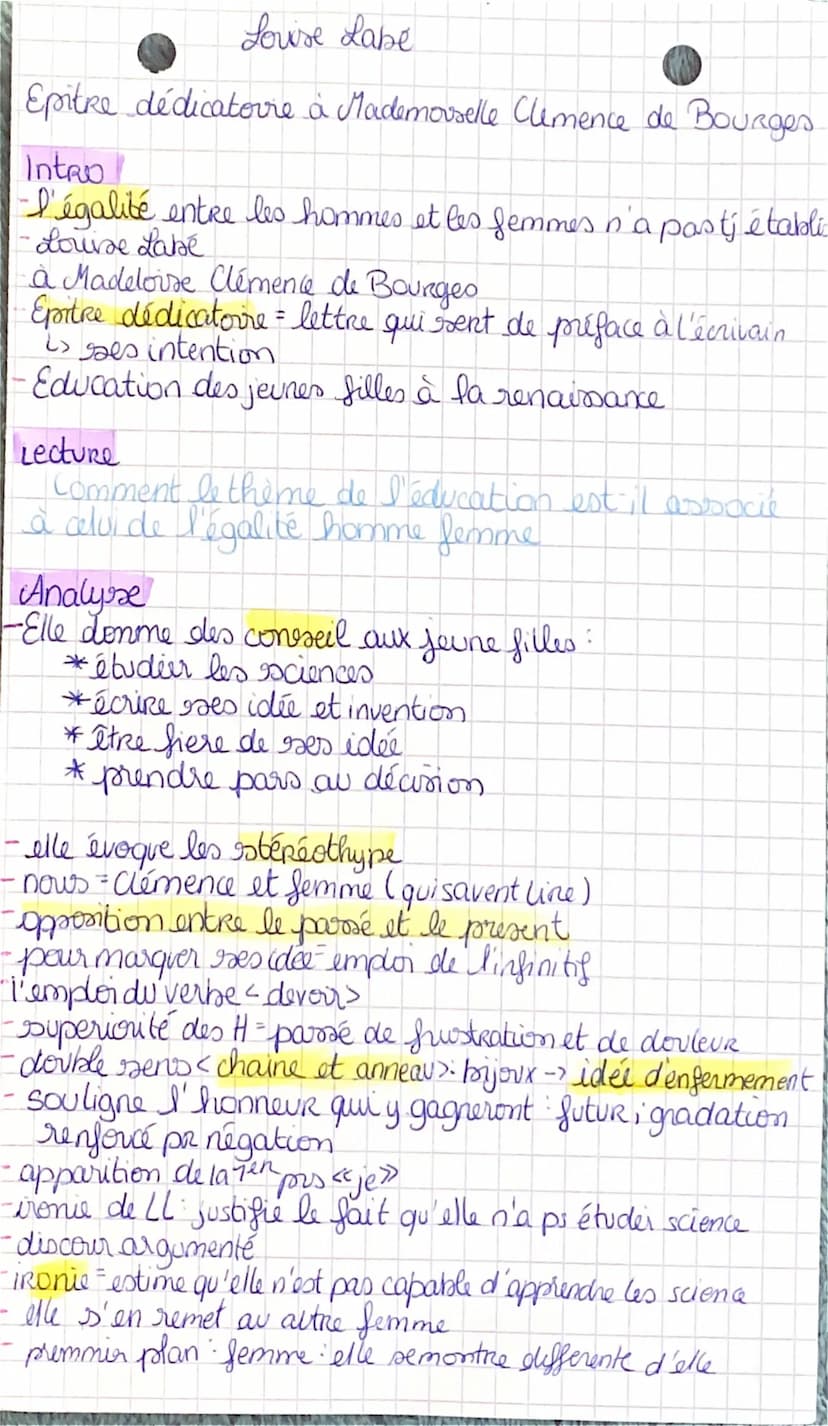 Louise Labé
Epitre dédicatoire à Mademoiselle Clémence de Bourges
Intro
- L'égalité entre les hommes et les femmes n'a pas tj établie
- Louise Labé
à Madeloise Clémence de Bourges
Epitre dédicatoire = lettre qui sert de préface à l'écrivain
↳ ses intention
- Education des jeunes filles à la renaissance
Lecture
Comment le thème de l'éducation est-il associé
à celui de l'égalité homme femme
Analyse
- Elle donne des conseil aux jeune filles :
* étudier les sciences
* écrire ses idée et invention
* être fiere de ses idée
* prendre pars au décision
- elle évoque les stéréothype
- nous = Clémence et femme (qui savent lire)
- opposition entre le passé et le present
- pour marquer ses idée = emploi de l'infinitif
- l'emploi du verbe < devoir >
- superiorité des H = passé de frustration et de douleur
- double sens < chaine et anneau > : bijoux -> idée d'enfermement
- souligne l'honneur qui y gagneront : futur ; gradation
renforcé pr négation
- apparition de la 1er prs << je >>
- ironie de LL : justifie le fait qu'elle n'a ps étudéi science
- discour argumenté
- ironie = estime qu'elle n'est pas capable d'apprendre les science
- elle s'en remet au autre femme
- premmier plan : femme : elle se montre differente d'elle